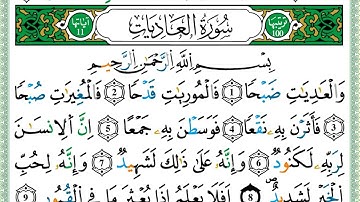 آياتها ١١ سُورَةُ العَادِيَاتِ ترتيبها 100
بِسْمِ اللَّهِ الرَّحْمَٰنِ الرَّحِيمِ
وَالْعَادِيَاتِ ضَبْحًا ① فَالْمُورِيَاتِ قَدْحًا ② فَالْمُغِيرَاتِ صُبْحًا
③ فَأَثَرْنَ بِهِ نَقْعًا ④ فَوَسَطْنَ بِهِ جَمْعًا ⑤ إِنَّ الْإِنسَانَ
لِرَبِّهِ لَكَنُودٌ ⑥ وَإِنَّهُ عَلَىٰ ذَٰلِكَ لَشَهِيدٌ ⑦ وَإِنَّهُ لِحُبِّ
الْخَيْرِ لَشَدِيدٌ ⑧ أَفَلَا يَعْلَمُ إِذَا بُعْثِرَ مَا فِي الْقُبُورِ ⑨